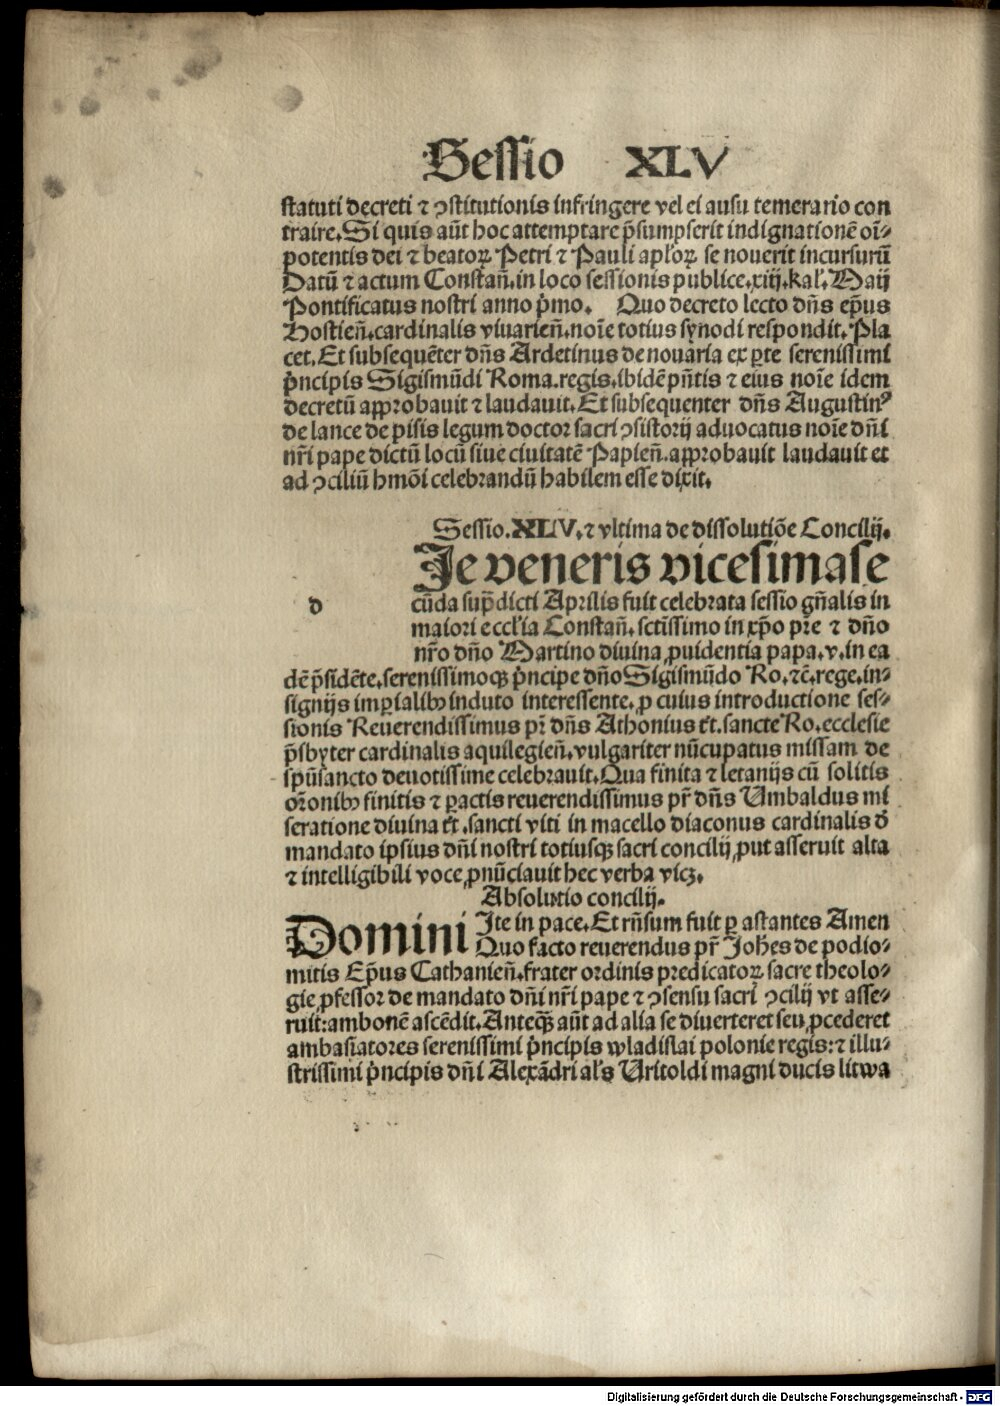 Sessio XLV
statuti decreti ⁊ ↄstitutionis infringere vel ei ausu temerario con
traire. Si quis aūt hoc attemptare p̄sumpserit indignationē oī⸗
potentis dei ⁊ beatoꝝ Petri ⁊ Pauli apl'oꝝ se nouerit incursurū
Datū ⁊ actum Constan̄. in loco sessionis publice. xiij. kal'. Maij
Pontificatus nostri anno p̄mo. Quo decreto lecto dn̄s ep̄us
Hostien̄. cardinalis viuarien̄. noīe totius synodi respondit. Pla
cet. Et subsequēter dn̄s Ardetinus de nouaria ex ꝑte serenissimi
p̄ncipis Sigismūdi Roma. regis. ibidē pn̄tis ⁊ eius noīe idem
decretū approbauit ⁊ laudauit. Et subsequenter dn̄s Augustinꝰ
de lance de pisis legum doctor sacri ↄsistorij aduocatus noīe dn̄i
nr̄i pape dictū locū siue ciuitatē Papien̄. approbauit laudauit et
ad ↄciliū hmōi celebrandū habilem esse dixit.
Sessio. XLV. ⁊ vltima de dissolutiōe Concilij.
Ie veneris vicesimase
d
cūda sup̄dicti Aprilis fuit celebrata sessio gn̄alis in
maiori eccl'ia Constan̄. sctīssimo in xp̄o pr̄e ⁊ dn̄o
nr̄o dn̄o Martino diuina ꝓuidentia papa. v. in ea
dē p̄sidēte. serenissimoqꝫ p̄ncipe dn̄o Sigismūdo Ro. ⁊c̄. rege. in⸗
signijs imꝑialibꝰ induto interessente. ꝓ cuius introductione ses⸗
sionis Reuerendissimus pr̄ dn̄s Athonius tt̄. sancte Ro. ecclesie
p̄sbyter cardinalis aquilegien̄. vulgariter nūcupatus missam de
spūsancto deuotissime celebrauit. Qua finita ⁊ letanijs cū solitis
or̄onibꝰ finitis ⁊ ꝑactis reuerendissimus pr̄ dn̄s Umbaldus mi
seratione diuina tt̄. sancti viti in macello diaconus cardinalis d̄
mandato ipsius dn̄i nostri totiusqꝫ sacri concilij ꝓut asseruit alta
⁊ intelligibili voce ꝓnūciauit hec verba vicꝫ.
Absolutio concilij.
Domini Ite in pace. Et rn̄sum fuit ꝑ astantes Amen
Quo facto reuerendus pr̄ Joh̄es de podio⸗
mitis Ep̄us Cathanien̄. frater ordinis predicatoꝝ sacre theolo⸗
gie ꝓfessor de mandato dn̄i nr̄i pape ⁊ ↄsensu sacri ↄcilij vt asse⸗
ruit: ambonē ascēdit. Anteqꝫ̄ aūt ad alia se diuerteret seu ꝓcederet
ambasiatores serenissimi p̄ncipis wladislai polonie regis: ⁊ illu⸗
strissimi p̄ncipis dn̄i Alexādri al's Uritoldi magni ducis litwa
Digitalisierung gefördert durch die Deutsche Forschungsgemeinschaft - DFG